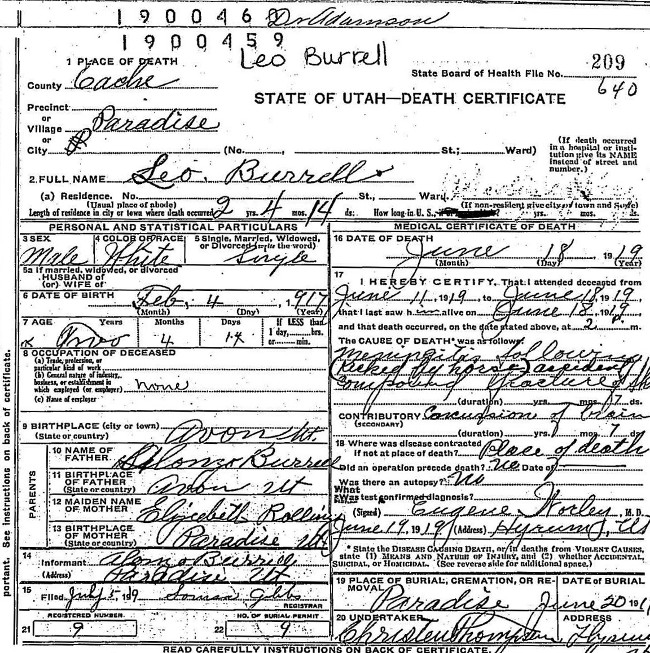 1900462 Dr Adamson
1900459
Leo Burrell
209
640
1 PLACE OF DEATH
County Cache
State Board of Health File No.
STATE OF UTAH—DEATH CERTIFICATE
Precinct
or
Village Paradise
or
City (No. St.; Ward)
(If death occurred in a hospital or institution give its NAME instead of street and number.)
2. FULL NAME Leo. Burrell
(a) Residence. No. St., Ward.
(Usual place of abode) (If non-resident give city or town and State)
Length of residence in city or town where death occurred 2 yrs. 4 mos. 14 ds. How long in U. S., yrs. mos. ds.
PERSONAL AND STATISTICAL PARTICULARS
3 SEX Male
4 COLOR OR RACE White
5 Single, Married, Widowed, or Divorced (write the word) Single
5a If married, widowed, or divorced
HUSBAND of
(or) WIFE of
6 DATE OF BIRTH Feb, 4, 1917
(Month) (Day) (Year)
7 AGE Years Months Days If LESS than
Two 4 14 1 day, hrs.
or min.
8 OCCUPATION OF DECEASED
(a) Trade, profession, or particular kind of work
(b) General nature of industry, business, or establishment in which employed (or employer) none
(c) Name of employer
9 BIRTHPLACE (city or town) Avon Ut.
(State or country)
PARENTS
10 NAME OF FATHER Alonzo Burrell
11 BIRTHPLACE OF FATHER Avon Ut
(State or country)
12 MAIDEN NAME OF MOTHER Elizabeth Rollins
13 BIRTHPLACE OF MOTHER Paradise Ut.
(State or country)
14
Informant Alonzo Burrell
(Address) Paradise Ut
15
Filed July 5 1919 Gibbs
REGISTRAR
REGISTERED NUMBER NO. OF BURIAL PERMIT
21 9 22 9
MEDICAL CERTIFICATE OF DEATH
16 DATE OF DEATH
June 18 1919
(Month) (Day) (Year)
17
I HEREBY CERTIFY, That I attended deceased from
June 11, 1919, to June 18, 1919,
that I last saw him alive on June 18, 1919
and that death occurred, on the date stated above, at 2 m.
The CAUSE OF DEATH was as follows:
Meningitis following
(kicked by horse) accident
Compound fracture
(duration) yrs. mos. 7 ds.
CONTRIBUTORY Concussion of brain
(SECONDARY)
(duration) yrs. mos. 7 ds.
18 Where was disease contracted
if not at place of death? Place of death
Did an operation precede death? no Date of
Was there an autopsy? No
What
Was test confirmed diagnosis?
(Signed) Eugene Worley, M. D.
June 19, 1919 (Address) Hyrum,
* State the DISEASE CAUSING DEATH, or in deaths from VIOLENT CAUSES, state (1) MEANS AND NATURE OF INJURY, and (2) whether ACCIDENTAL, SUICIDAL, or HOMICIDAL. (See reverse side for additional space.)
19 PLACE OF BURIAL, CREMATION, OR REMOVAL
Paradise
DATE OF BURIAL
June 20 191
20 UNDERTAKER
Christen Thompson
ADDRESS
Hyrum
READ CAREFULLY INSTRUCTIONS ON BACK OF CERTIFICATE.
portant. See instructions on back of certificate.